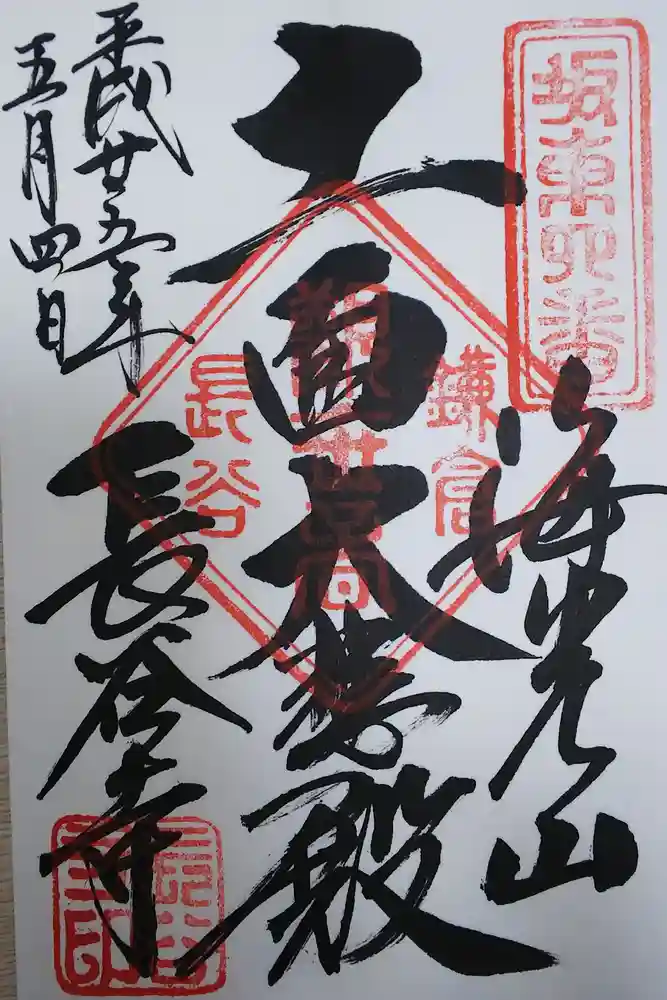 坂東四番
海光山
十一面大悲殿
鎌倉
観世音
長谷
長谷寺
平成廿五年
五月四日